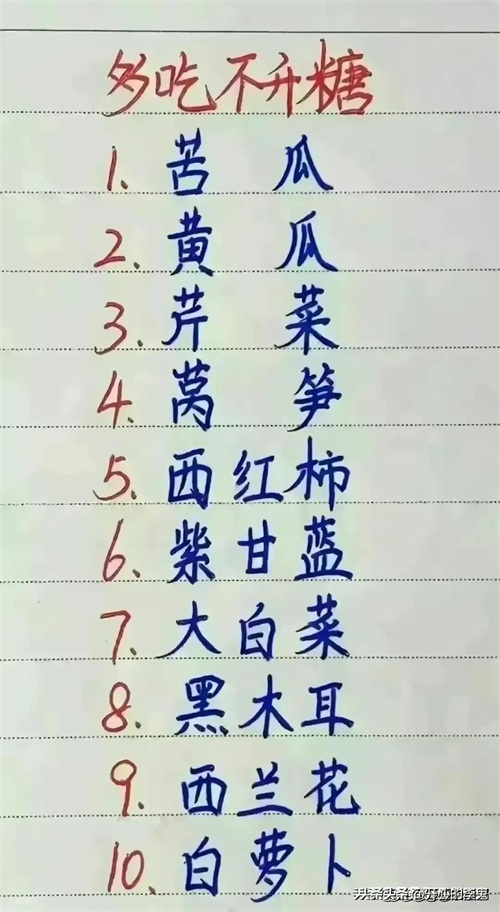 多吃不升糖
1. 苦瓜
2. 黄瓜
3. 芹菜
4. 莴笋
5. 西红柿
6. 紫甘蓝
7. 大白菜
8. 黑木耳
9. 西兰花
10. 白萝卜